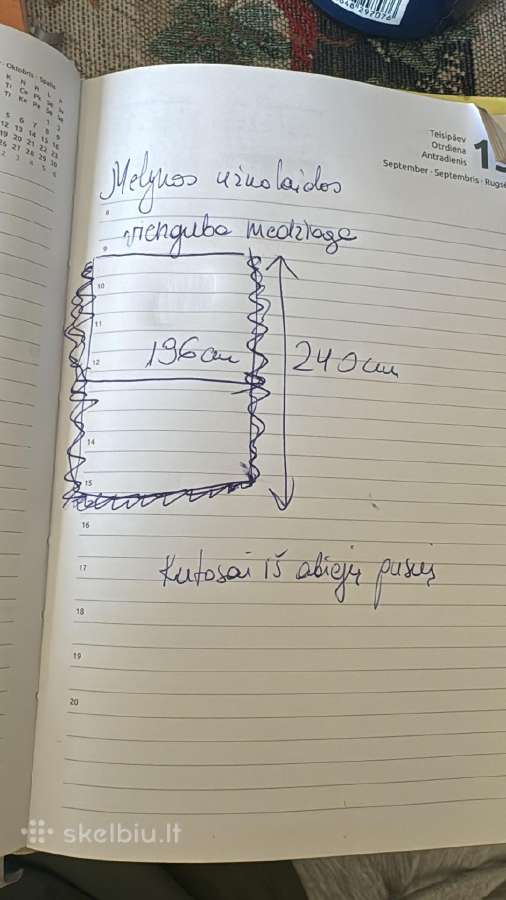 Oktobris · Spalis
K N R L P
Ti Ce Pk Se Sv
Tr Ke Pe Še Se
1 2
5 6 7 8 9
12 13 14 15 16
19 20 21 22 23
26 27 28 29 30
2 3 4 5 6
Teisipäev
Otrdiena
Antradienis
September · Septembris · Rugsė
1
Mėlynos užuolaidos
8
vienguba medžiaga
9
10
11
12
196cm
240cm
14
15
16
17
Kutosai iš abiejų pusių
18
19
20
skelbiu.lt